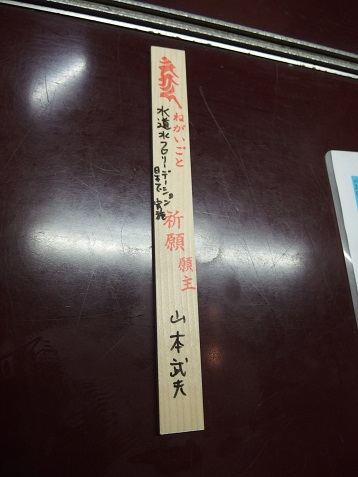 ねがいごと
水道水フロリデーション
日本で実施
祈願
願主
山本武夫